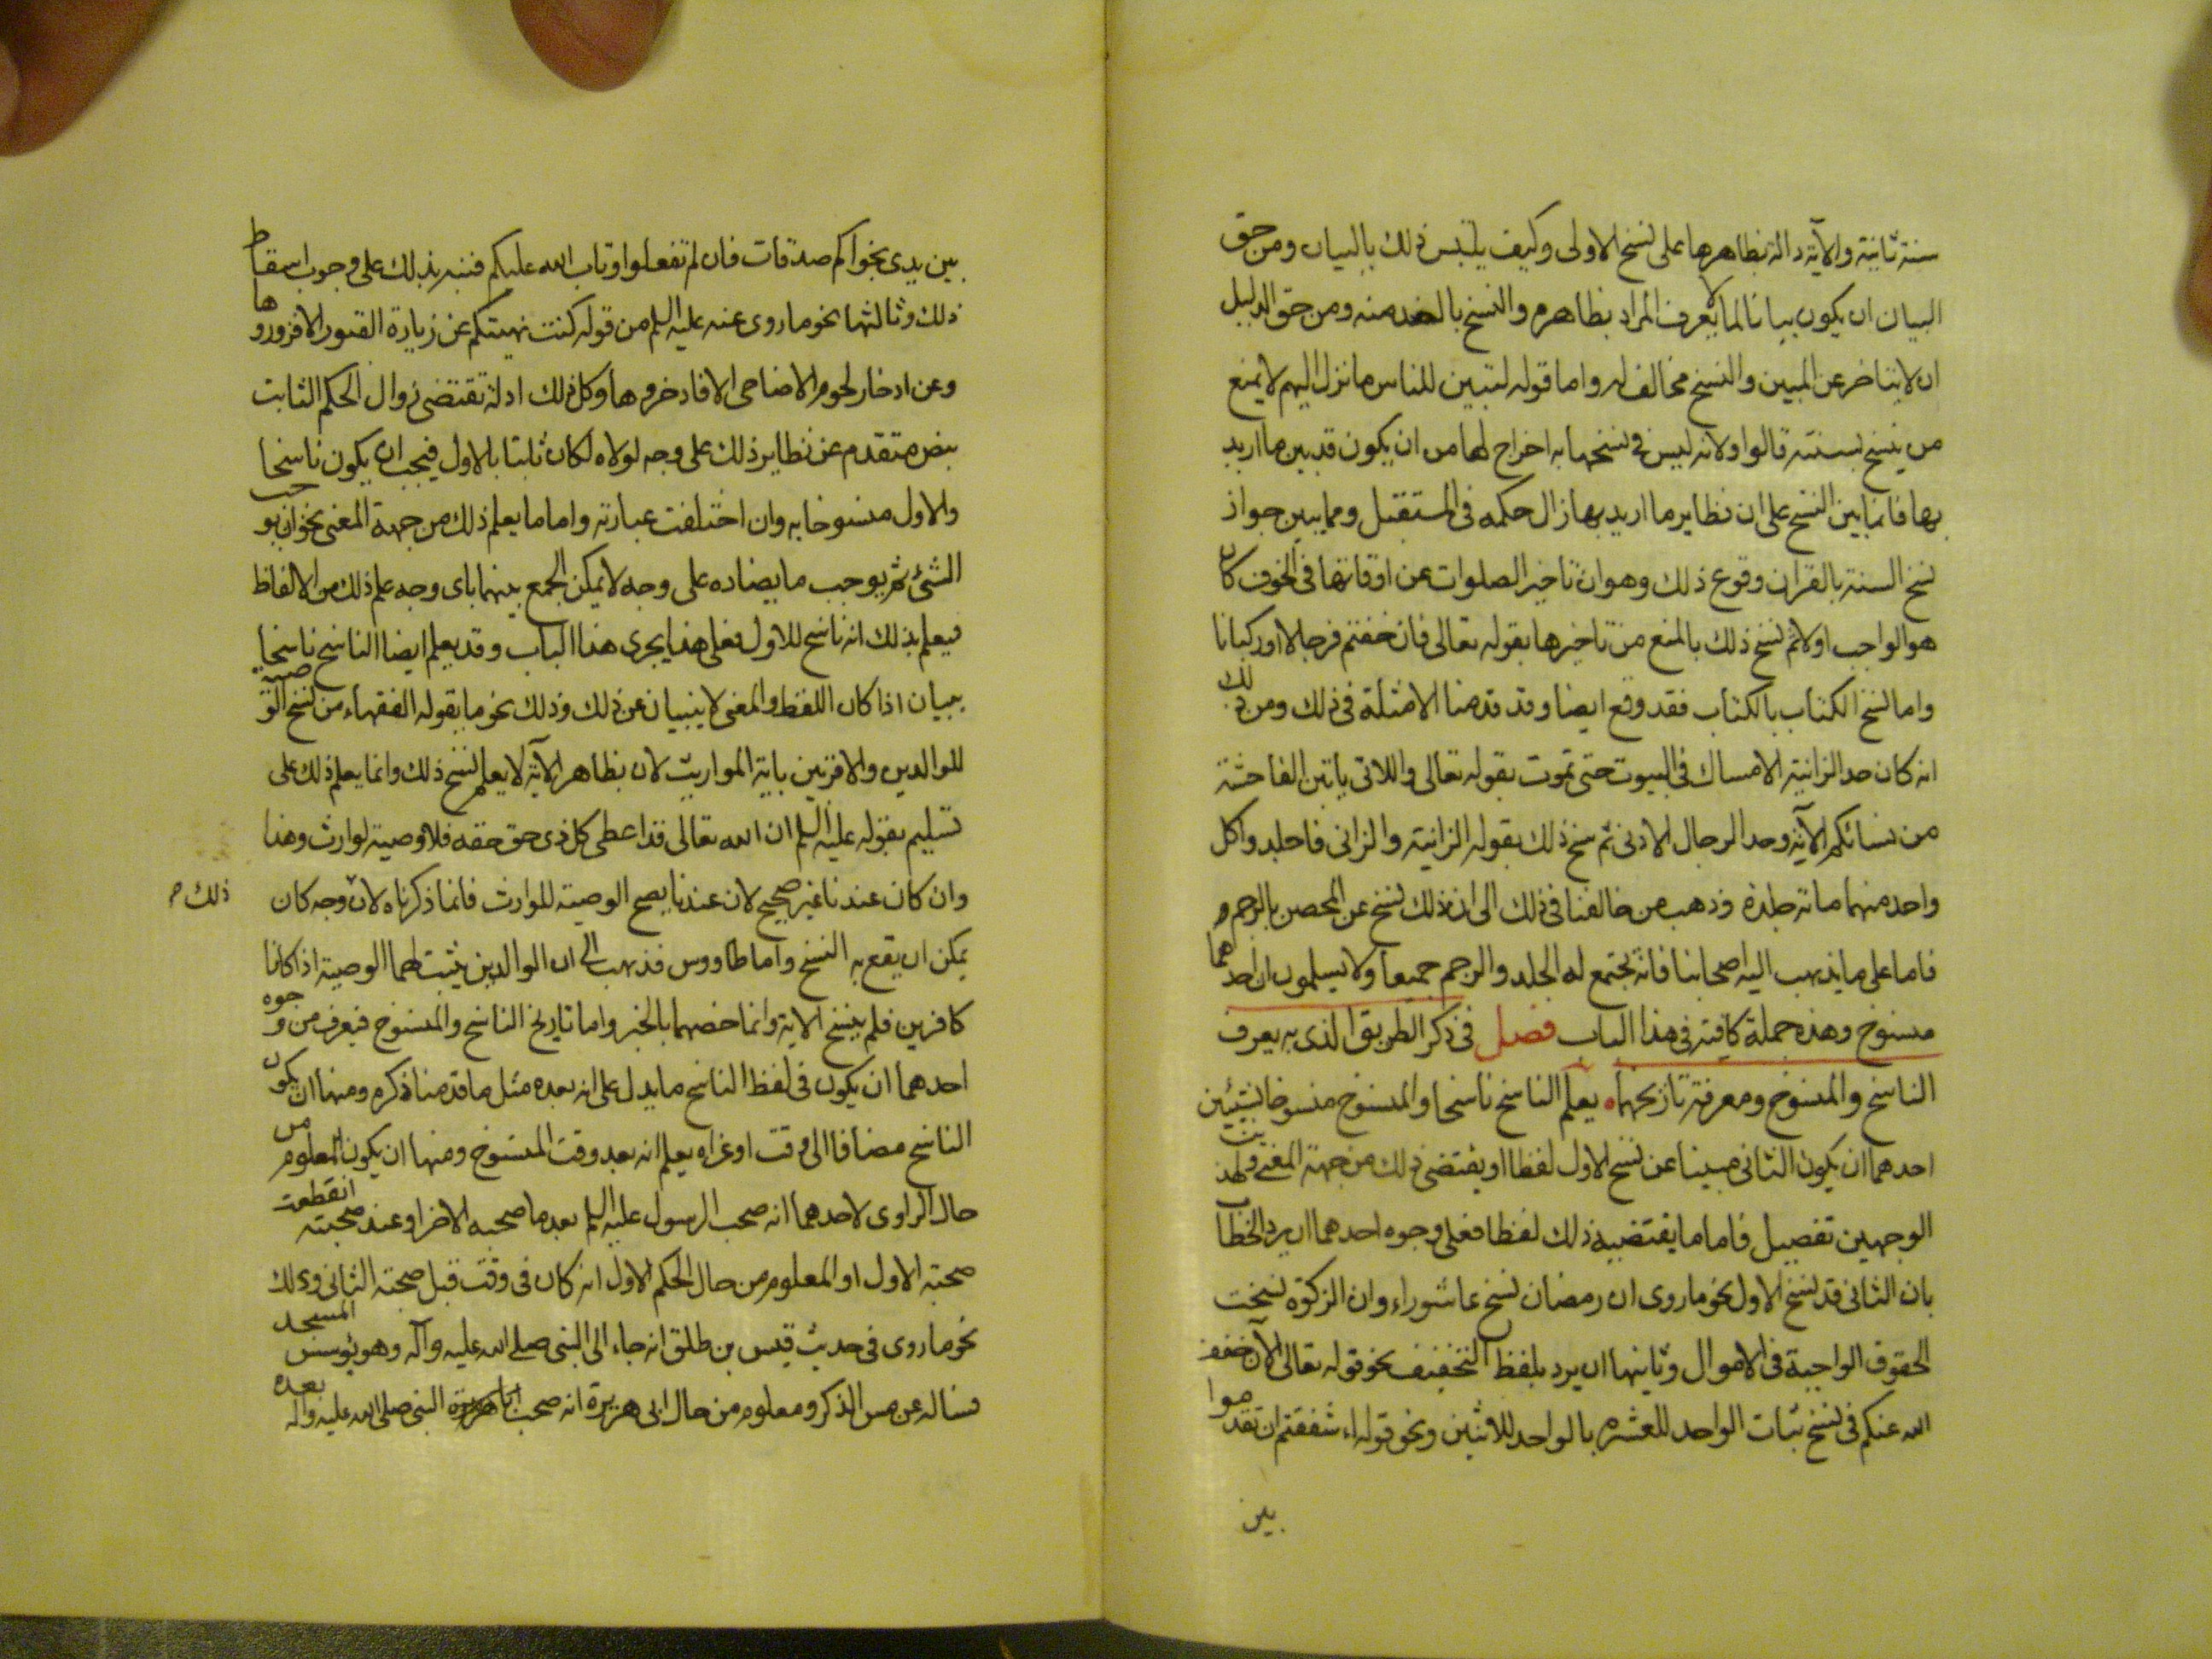 سنة ثانية والآية دالة بظاهرها على نسخ الاولى وكيف يلتبس ذلك بالبيان ومن حق
البيان ان يكون بيانا لما لا يعرف المراد بظاهره والنسخ بالضد منه ومن حق الدليل
ان لا يتاخر عن المبين والنسخ مخالف له واما قوله لتبين للناس ما نزل اليهم لا يمنع
من ينسخ بسنته قالوا ولانه ليس فى نسخها به اخراج لها من ان يكون قد بين ما اريد
بها فانما يبين النسخ على ان نظاير ما اريد بها زال حكمه فى المستقبل ومما يبين جواز
نسخ السنة بالقران وقوع ذلك وهو ان تاخير الصلوات عن اوقاتها فى الخوف كان
هو الواجب اولا ثم نسخ ذلك بالمنع من تاخيرها بقوله تعالى فان خفتم فرجالا او ركبانا
واما نسخ الكتاب بالكتاب فقد وقع ايضا وقد قدمنا الامثلة فى ذلك ومن ذلك
انه كان حد الزانية الامساك فى البيوت حتى تموت بقوله تعالى واللاتى ياتين الفاحشة
من نسائكم الآية وحد الرجال الاذى ثم نسخ ذلك بقوله الزانية والزانى فاجلدوا كل
واحد منهما مائة جلدة وذهب من خالفنا فى ذلك الى ان ذلك نسخ عن المحصن بالرجم و
فاما على ما يذهب اليه اصحابنا فانه يجتمع له الجلد والرجم جميعا ولا يسلمون ان احدهما
منسوخ وهذه جملة كافية فى هذا الباب فصل فى ذكر الطريق الذى به يعرف
الناسخ والمنسوخ ومعرفة تاريخهما يعلم الناسخ ناسخا والمنسوخ منسوخا بشيئين
احدهما ان يكون الثانى مبينا عن نسخ الاول لفظا او يقتضى ذلك من جهة المعنى ولهذين
الوجهين تفصيل فاما ما يقتضيه ذلك لفظا فعلى وجوه احدهما ان يرد الخطاب
بان الثانى قد نسخ الاول نحو ما روى ان رمضان نسخ عاشوراء وان الزكوة نسخت
الحقوق الواجبة فى الاموال وثانيها ان يرد بلفظ التخفيف نحو قوله تعالى الآن خفف
الله عنكم فى نسخ ثبات الواحد للعشره بالواحد للاثنين ونحو قوله اء شفقتم ان تقدموا
بين
بين يدى نجواكم صدقات فان لم تفعلوا وتاب الله عليكم فنبه بذلك على وجوب اسقاط
ذلك وثالثها نحو ما روى عنه عليه السلم من قوله كنت نهيتكم عن زيارة القبور الا فزوروها
وعن ادخار لحوم الاضاحى الا فادخروها وكل ذلك ادلة تقتضى زوال الحكم الثابت
بنص متقدم عن نظاير ذلك على وجه لولاه لكان ثابتا بالاول فيجب ان يكون ناسخا
والاول منسوخا به وان اختلفت عبارته واما ما يعلم ذلك من جهة المعنى نحو ان يوجب
الشئ ثم يوجب ما يضاده على وجه لا يمكن الجمع بينهما باى وجه علم ذلك من الالفاظ
فيعلم بذلك انه ناسخ للاول فعلى هذا يجرى هذا الباب وقد يعلم ايضا الناسخ ناسخا
ببيان اذا كان اللفظ والمعنى لا ينبيان عن ذلك وذلك نحو ما يقوله الفقهاء من نسخ الوصية
للوالدين والاقربين باية المواريث لان بظاهر الآية لا يعلم نسخ ذلك وانما يعلم ذلك على
تسليم بقوله عليه السلم ان الله تعالى قد اعطى كل ذى حق حقه فلا وصية لوارث وهذا
وان كان عندنا غير صحيح لان عندنا يصح الوصية للوارث فانما ذكرناه لان وجه كان
ذلك م
يمكن ان يقع به النسخ واما طاووس فذهب الى ان الوالدين يثبت لهما الوصية اذا كانا
كافرين فلم ينسخ الاية وانما خصهما بالخبر واما تاريخ الناسخ والمنسوخ فيعرف من وجوه
احدهما ان يكون فى لفظ الناسخ ما يدل على انه بعده مثل ما قدمنا ذكره ومنها ان يكون
الناسخ مضافا الى وقت او غزاه يعلم انه بعد وقت المنسوخ ومنها ان يكون المعلوم من
حال الراوى لاحدهما انه صحب الرسول عليه السلم بعد ما صحبه الاخر او عند صحبته انقطعت
صحبة الاول او المعلوم من حال الحكم الاول انه كان فى وقت قبل صحبة الثانى وذلك
نحو ما روى فى حديث قيس بن طلق انه جاء الى النبى صلى الله عليه وآله وهو يؤسس المسجد
فساله عن مس الذكر ومعلوم من حال ابى هريرة انه صحب النبى صلى الله عليه وآله بعده